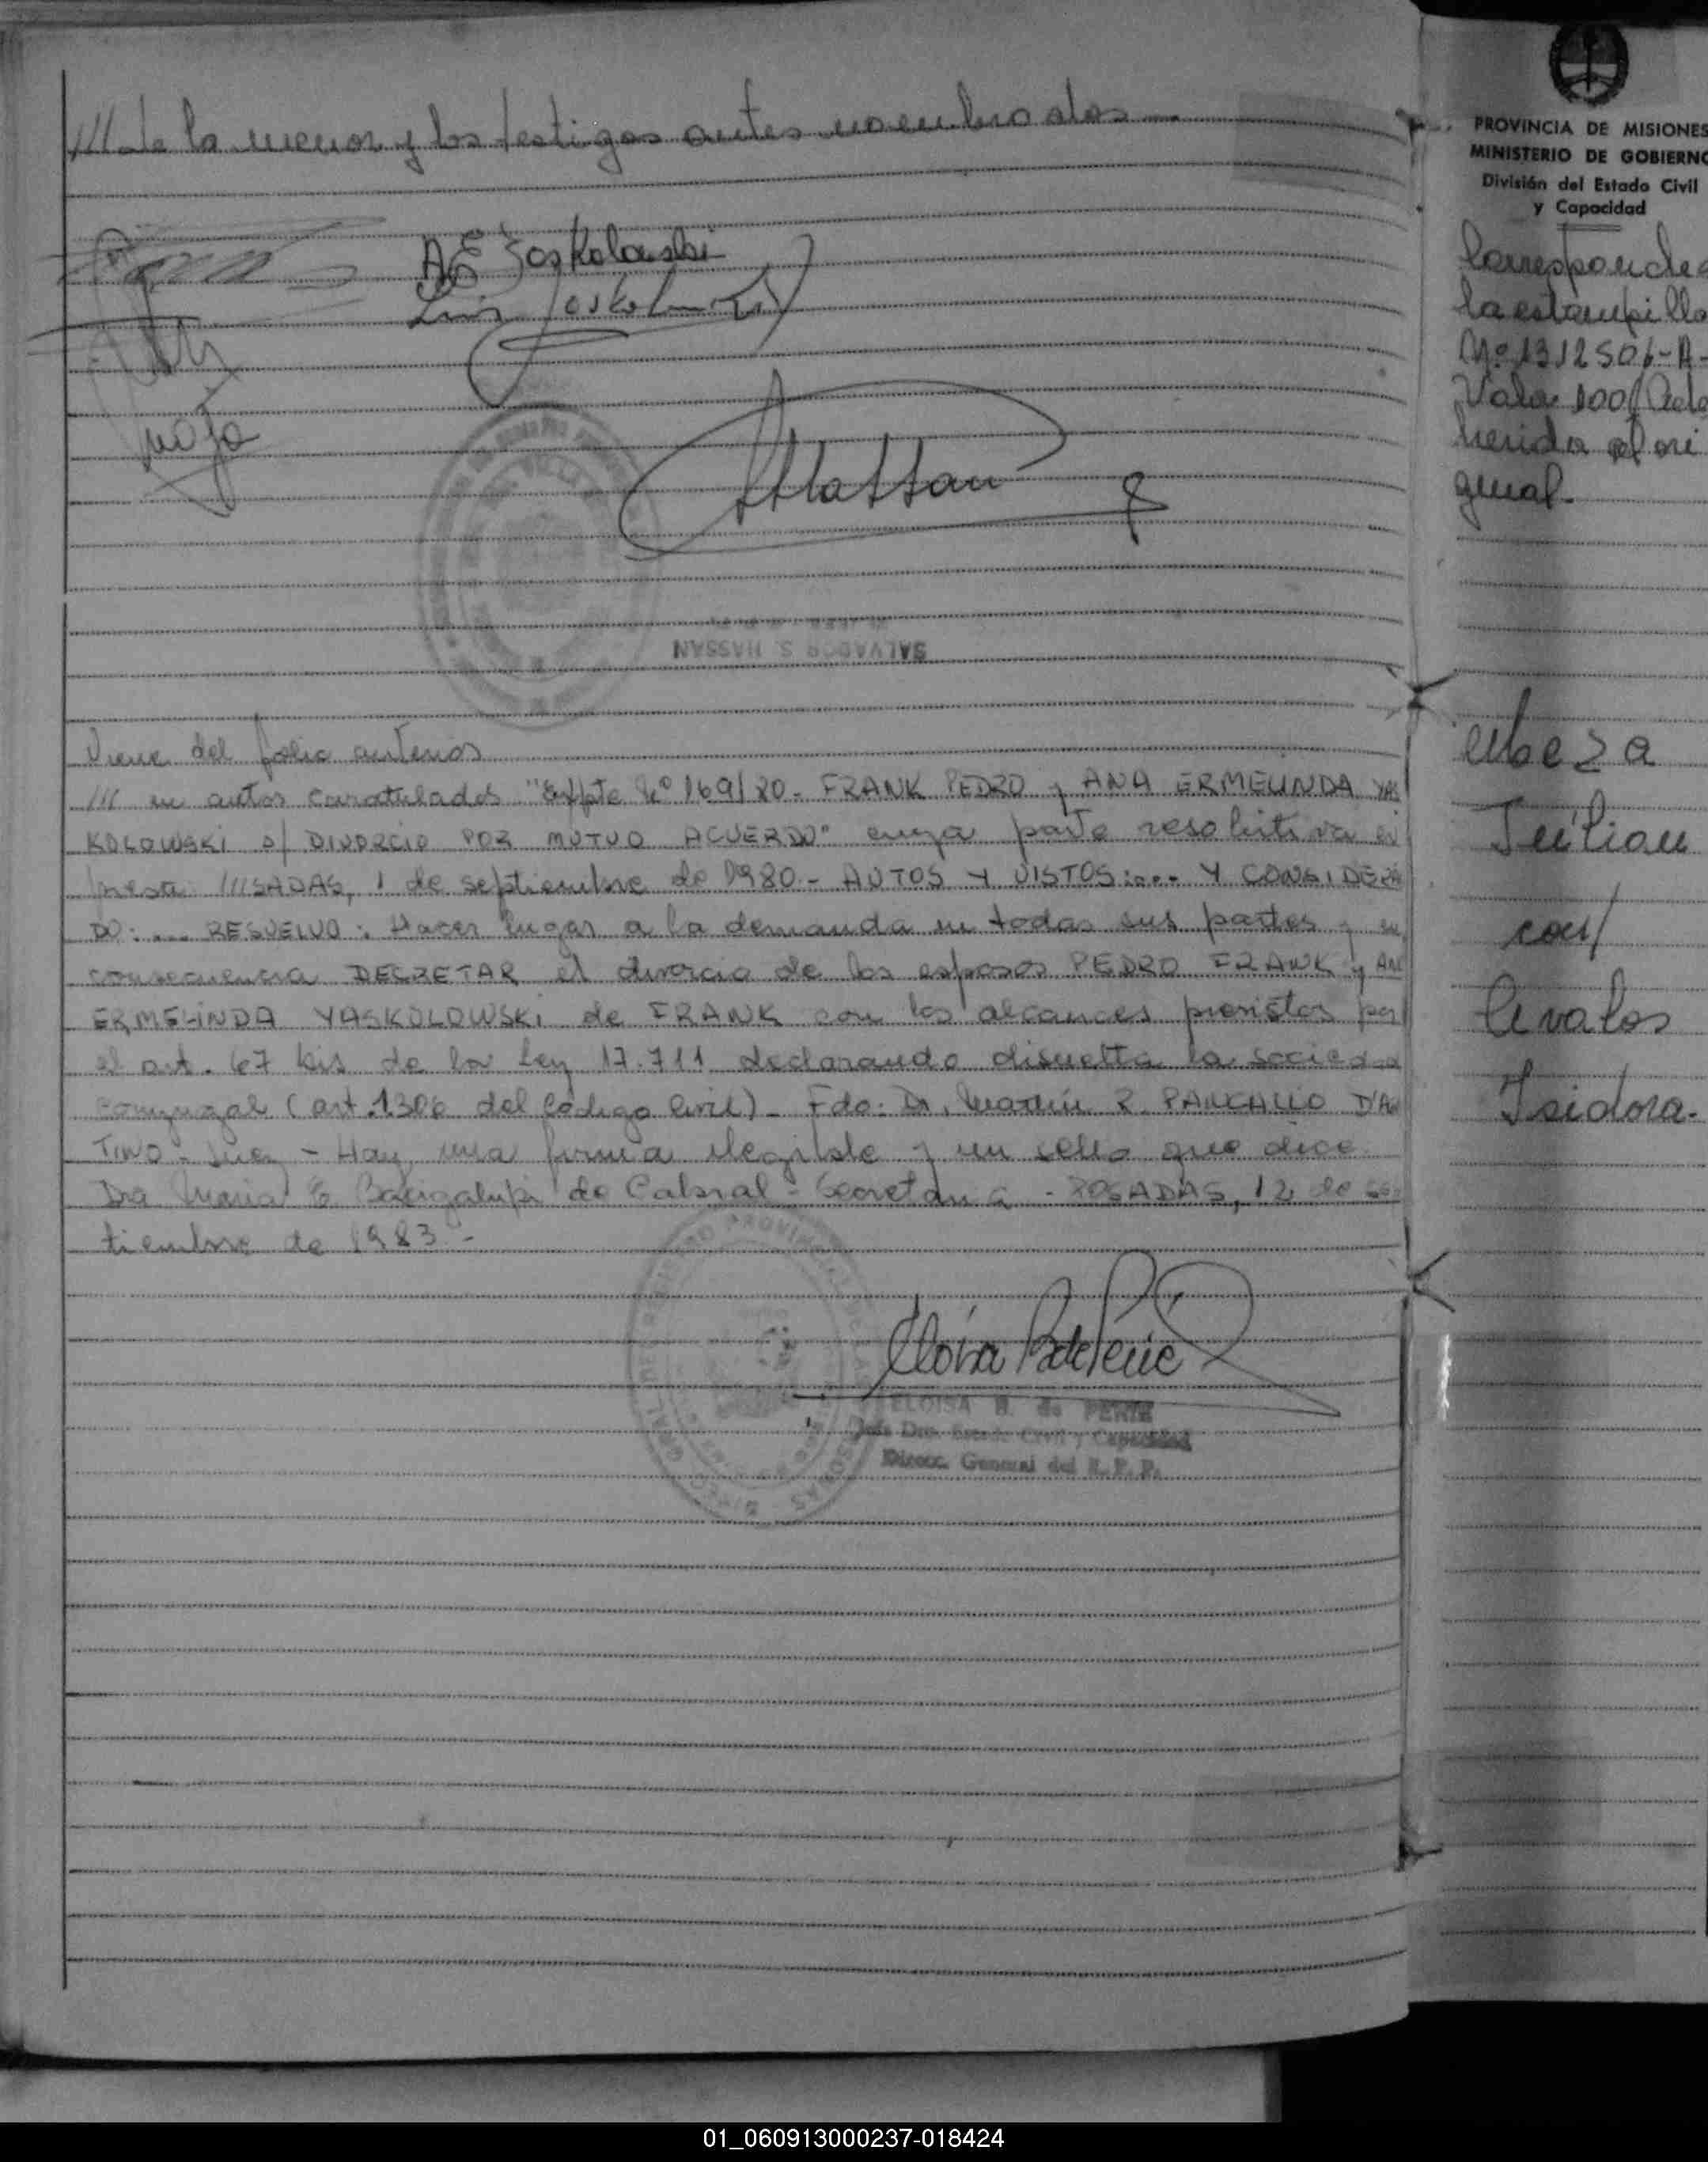 /// de la menor y los testigos antes nombrados
A E Joskolowski
Luis
Hassan
SALVADOR S. HASSAN
Viene del folio anterior
/// en autos caratulados "Expte Nº 169/80 - FRANK PEDRO y ANA ERMELINDA YAS
KOLOWSKI s/ DIVORCIO POR MUTUO ACUERDO" cuya parte resolutiva
/// SADAS, 1 de septiembre de 1980.- AUTOS Y VISTOS:... Y CONSIDERAN
DO:... RESUELVO: Hacer lugar a la demanda en todas sus partes y en
consecuencia DECRETAR el divorcio de los esposos PEDRO FRANK y ANA
ERMELINDA YASKOLOWSKI de FRANK con los alcances previstos por
el art. 67 bis de la Ley 17.711 declarando disuelta la sociedad
conyugal (art. 1306 del Código Civil) - Fdo: Dr. Martín R. D'A
TINO - Juez - Hay una firma ilegible y un sello que dice
Dra María E. Bacigalupi de Cabral - Secretaria - POSADAS, 12 de se
tiembre de 1983.-
ELOISA B. de
Jefe Dto. Estado Civil y Capacidad
Direcc. General del R.P.P.
PROVINCIA DE MISIONES
MINISTERIO DE GOBIERNO
División del Estado Civil
y Capacidad
Corresponde a
la estampilla
Nº 1312506-A-
Valor 100/ Ade
herida al ori
ginal.-
Julian
con/
Avalos
Isidora.-
01_060913000237-018424